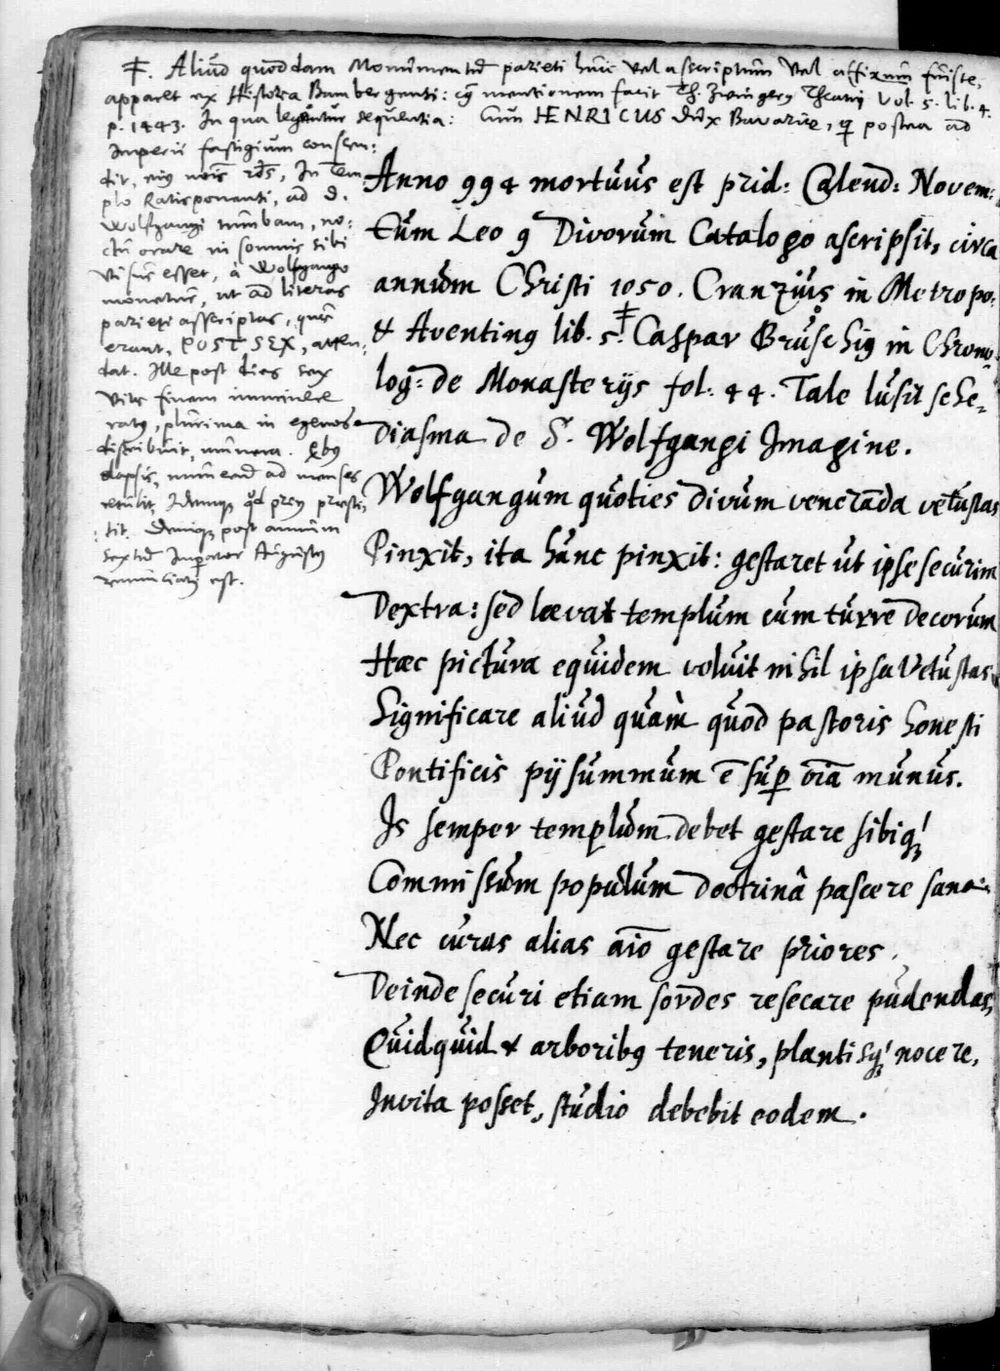 ‡. Aliud quoddam Monumentũ parieti huic vel asscriptum vel affixum fuisse,
apparet ex Historia Bambergensi: cuj mentionem facit Th. Zwingerg Theatrj Vol. 5. lib. 4.
p. 1443. In qua leguntur sequentia: Cum HENRICUS dux Bavariæ, q postea ad
Imperii fastigium conscen:
dit, eius nois 2ds, In Tem
plo Ratisponensi, ad D.
Wolfgangi tumbam, no:
ctu orare in somnis sibi
visus esset, à Wolfgango
monetur, ut ad literas
parieti asscriptas, quæ
erant, POST SEX, atten:
dat. Ille post dies sex
vitæ finem imminere
ratg, plurima in egenos
distribuit, munera. Qbg
elapsis, numerũ ad menses
retulit, Idemq.
tit. Deniq post annum
sextũ Imperator Augustg
renunciatg est.
Anno 994 mortuus est prid: Calend: Novem:
Eum Leo 9 Divorum Catalogo ascripsit, circa
annum Christi 1050. Cranzius in Metropo:
& Aventing lib. 5.‡ Caspar Bruschig in Chrono
log: de Monasterijs fol: 44. Tale lusit sche-
diasma de S. Wolfgangi Imagine.
Wolfgangum quoties divum venerãda vetustas
Pinxit, ita hunc pinxit: gestaret ut ipse securim
Dextra: sed læva templum cum turre decorum
Hæc pictura equidem voluit nihil ipsa Vetustas
Significare aliud quàm quod pastoris honesti
Pontificis pij summum ẽ sup oĩa munus.
Is semper templum debet gestare sibiq'
Commissum populum doctrinâ pascere sana:
Nec curas alias aĩo gestare priores.
Deinde securi etiam sordes resecare pudendas,
Quidquid & arboribg teneris, plantisq' nocere,
Invita posset, studio debebit eodem.